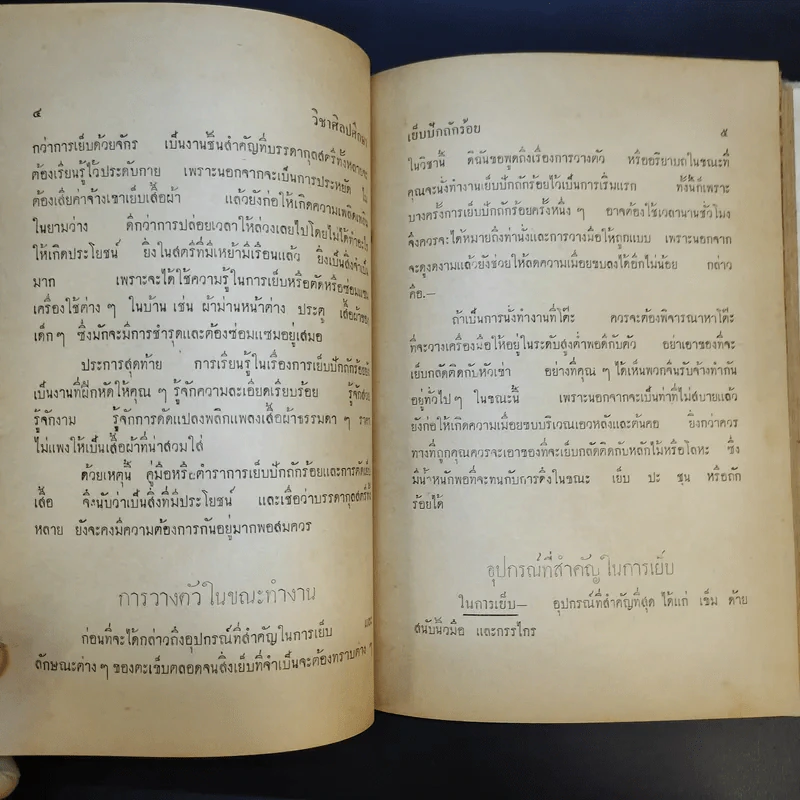 ๔
วิชาศิลปศึกษา
กว่าการเย็บด้วยจักร เป็นงานชิ้นสำคัญที่บรรดากุลสตรีทั้งหลาย
ต้องเรียนรู้ไว้ประดับกาย เพราะนอกจากจะเป็นการประหยัด ไม่
ต้องเสียค่าจ้างเขาเย็บเสื้อผ้า แล้วยังก่อให้เกิดความเพลิดเพลิน
ในยามว่าง ดีกว่าการปล่อยเวลาให้ล่วงเลยไปโดยไม่ได้ทำอะไร
ให้เกิดประโยชน์ ยิ่งในสตรีที่มีเหย้ามีเรือนแล้ว ยิ่งเป็นสิ่งจำเป็น
มาก เพราะจะได้ใช้ความรู้ในการเย็บหรือตัดหรือซ่อมแซม
เครื่องใช้ต่าง ๆ ในบ้าน เช่น ผ้าม่านหน้าต่าง ประตู เสื้อผ้าของ
เด็ก ๆ ซึ่งมักจะมีการชำรุดและต้องซ่อมแซมอยู่เสมอ
ประการสุดท้าย การเรียนรู้ในเรื่องการเย็บปักถักร้อย
เป็นงานที่ฝึกหัดให้คุณ ๆ รู้จักความละเอียดเรียบร้อย รู้จักสวย
รู้จักงาม รู้จักการดัดแปลงพลิกแพลงเสื้อผ้าธรรมดา ๆ ราคา
ไม่แพงให้เป็นเสื้อผ้าที่น่าสวมใส่
ด้วยเหตุนี้ คู่มือหรือตำราการเย็บปักถักร้อยและการตัดเย็บ
เสื้อ จึงนับว่าเป็นสิ่งที่มีประโยชน์ และเชื่อว่าบรรดากุลสตรีทั้ง
หลาย ยังจะคงมีความต้องการกันอยู่มากพอสมควร
การวางตัวในขณะทำงาน
ก่อนที่จะได้กล่าวถึงอุปกรณ์ที่สำคัญในการเย็บ และ
ลักษณะต่าง ๆ ของตะเข็บตลอดจนสิ่งเย็บที่จำเป็นจะต้องทราบต่าง ๆ
เย็บปักถักร้อย
๕
ในวิชานี้ ดิฉันขอพูดถึงเรื่องการวางตัว หรืออริยาบถในขณะที่
คุณจะนั่งทำงานเย็บปักถักร้อยไว้เป็นการเริ่มแรก ทั้งนี้ก็เพราะ
บางครั้งการเย็บปักถักร้อยครั้งหนึ่ง ๆ อาจต้องใช้เวลานานชั่วโมง
จึงควรจะได้หมายถึงท่านั่งและการวางมือให้ถูกแบบ เพราะนอกจาก
จะดูงดงามแล้วยังช่วยให้ลดความเมื่อยขบลงได้อีกไม่น้อย กล่าว
คือ.—
ถ้าเป็นการนั่งทำงานที่โต๊ะ ควรจะต้องพิจารณาหาโต๊ะ
ที่จะวางเครื่องมือให้อยู่ในระดับสูงต่ำพอดีกับตัว อย่าเอาของที่จะ
เย็บกลัดติดกับหัวเข่า อย่างที่คุณ ๆ ได้เห็นพวกจีนรับจ้างทำกัน
อยู่ทั่วไป ๆ ในขณะนี้ เพราะนอกจากจะเป็นท่าที่ไม่สบายแล้ว
ยังก่อให้เกิดความเมื่อยขบบริเวณเอวหลังและต้นคอ ยิ่งกว่าควร
ทางที่ถูกคุณควรจะเอาของที่จะเย็บกลัดติดกับหลักไม้หรือโลหะ ซึ่ง
มีน้ำหนักพอที่จะทนกับการดึงในขณะ เย็บ ปะ ชุน หรือถัก
ร้อยได้
อุปกรณ์ที่สำคัญในการเย็บ
ในการเย็บ— อุปกรณ์ที่สำคัญที่สุด ได้แก่ เข็ม ด้าย
สนับนิ้วมือ และกรรไกร